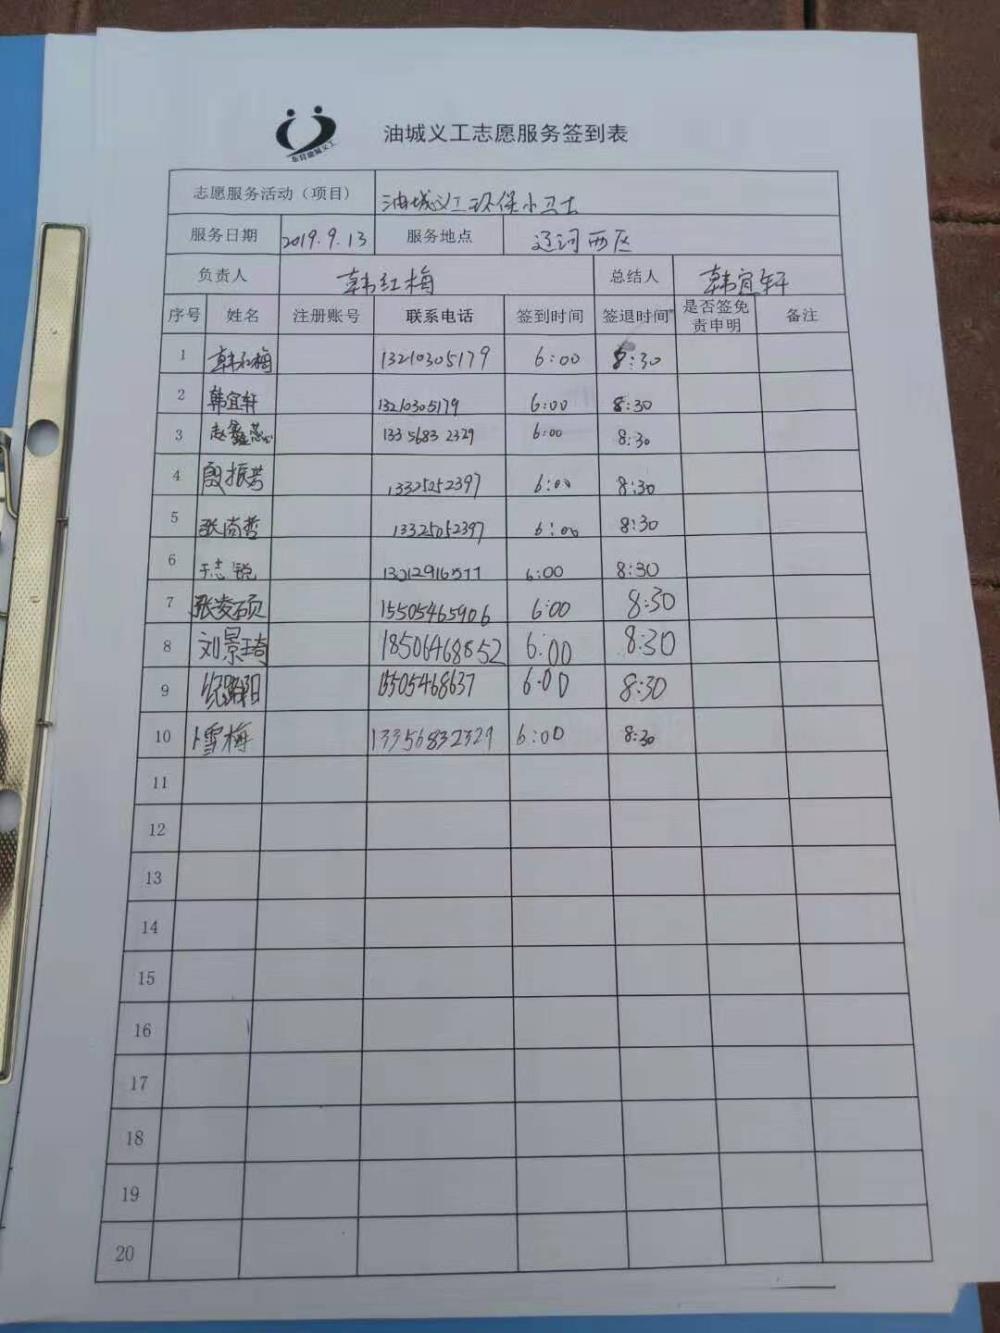 油城义工志愿服务签到表
志愿服务活动（项目） 油城义工环保小卫士
服务日期 2019.9.13 服务地点 辽河西区
负责人 韩红梅 总结人 韩宜轩
序号 姓名 注册账号 联系电话 签到时间 签退时间 是否签免责申明 备注
1 韩红梅 13210305179 6:00 8:30
2 韩宜轩 13210305179 6:00 8:30
3 赵鑫蕊 133 5683 2329 6:00 8:30
4 殷振芳 13325052397 6:00 8:30
5 张尚哲 13325052397 6:00 8:30
6 于志锐 6:00 8:30
7 张凌硕 15505465906 6:00 8:30
8 刘景琦 18506468852 6:00 8:30
9 15505468637 6:00 8:30
10 卜雪梅 13356832329 6:00 8:30
11
12
13
14
15
16
17
18
19
20